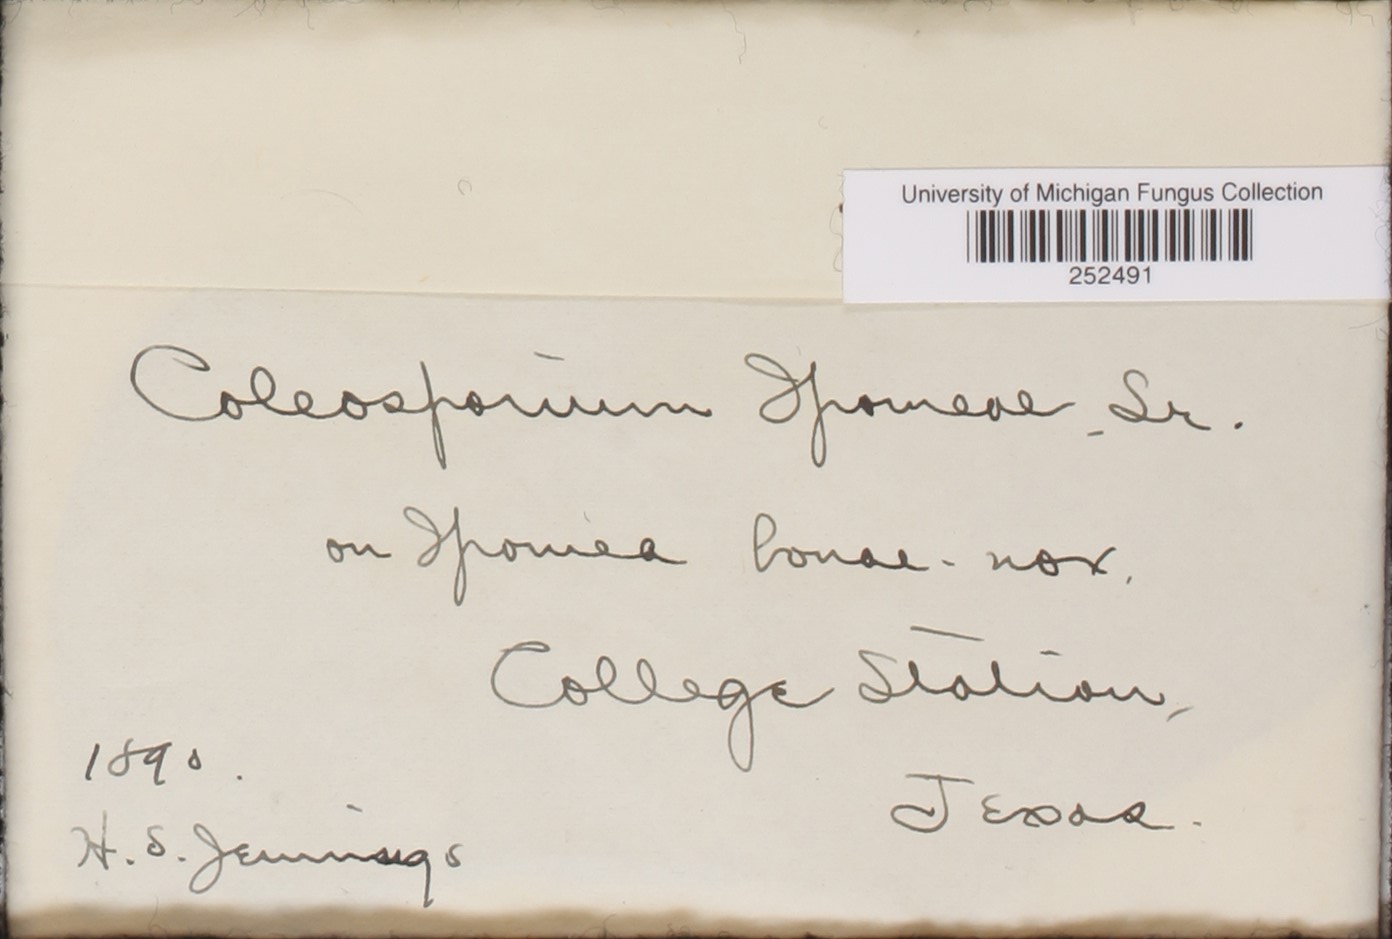 University of Michigan Fungus Collection
252491
Coleosporium Ipomeae Sr.
on Ipomea bonae-nox.
College Station,
Texas.
1890.
H. S. Jennings